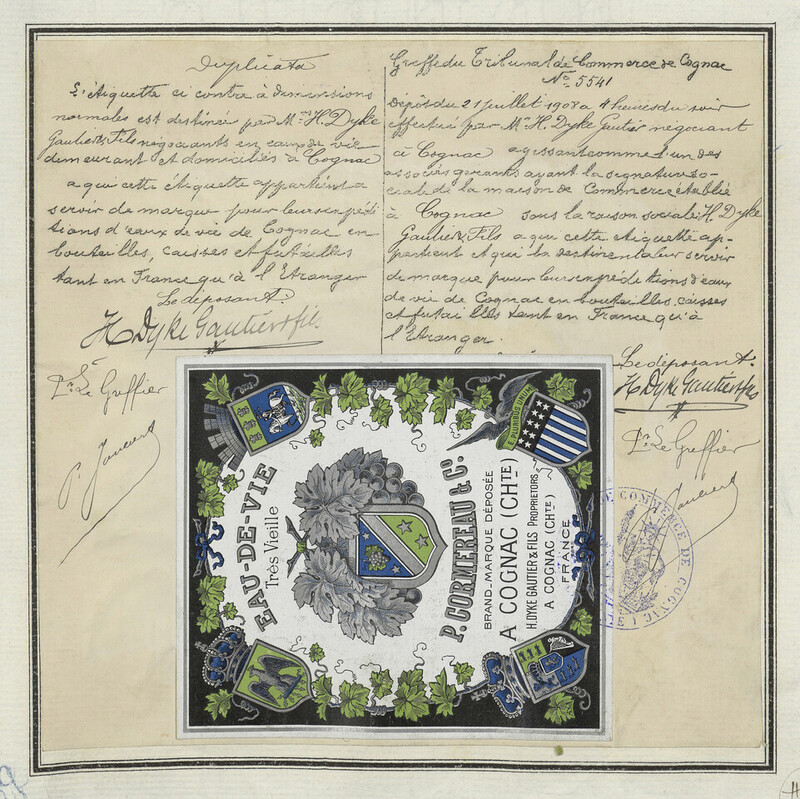 Duplicata
L'étiquette ci contre à dimensions
normales est destinée par Mrs H. Dyke
Gautier & Fils négociants en eaux de vie
demeurant et domiciliés à Cognac
a qui cette étiquette appartient a
servir de marque pour leurs expédi-
tions d'eaux de vie de Cognac en
bouteilles, caisses et futailles
tant en France qu'à l'Etranger
Le déposant.
H Dyke Gautier & fils
Pr Le Greffier
Greffe du Tribunal de Commerce de Cognac
No 5541
Dépôt du 21 juillet 1908 a 4 heures du soir
effectué par Mr H. Dyke Gautier négociant
à Cognac agissant comme l'un des
associés gerants ayant la signature so-
ciale de la maison de Commerce établie
à Cognac sous la raison sociale H. Dyke
Gautier & Fils a qui cette étiquette ap-
partient et qui la destine a leur servir
de marque pour leurs expéditions d'eaux
de vie de Cognac en bouteilles, caisses
et futailles tant en France qu'à
l'Etranger.
Le déposant.
H Dyke Gautier & fils
Pr Le Greffier
EAU-DE-VIE
Très Vieille
P. CORMEREAU & Co.
BRAND_MARQUE DÉPOSÉE
A COGNAC (CHTE)
H. DYKE GAUTIER & FILS PROPRIETORS
A COGNAC (CHTE)
FRANCE
E PLURIBUS UNUM
DE COMMERCE DE COGNAC